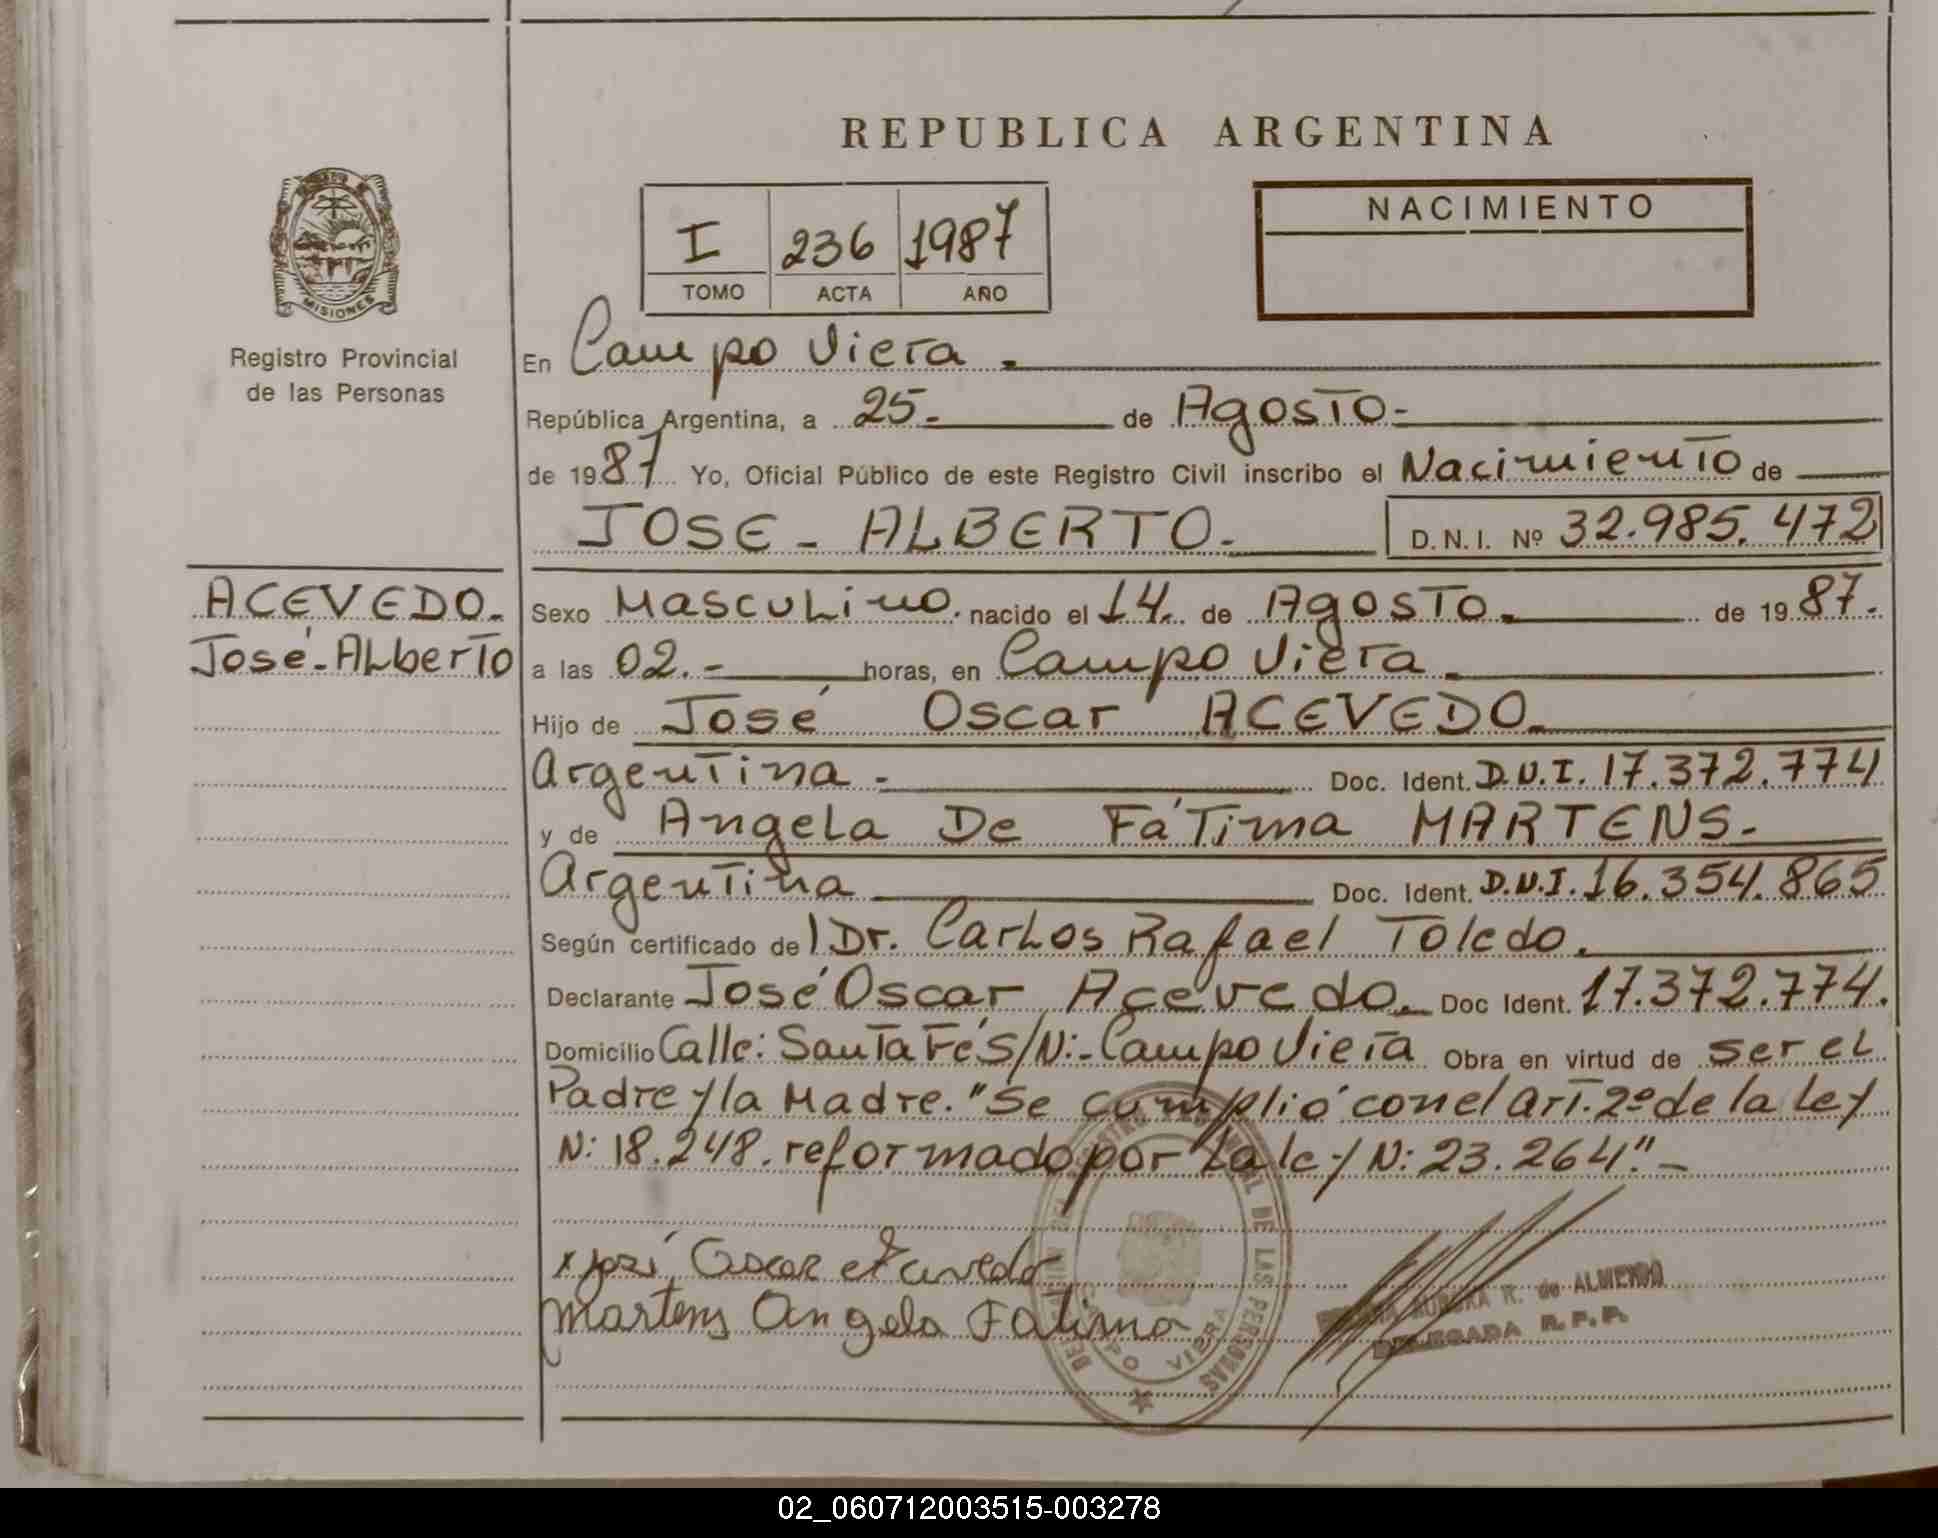 REPUBLICA ARGENTINA
MISIONES
Registro Provincial
de las Personas
I 236 1987
TOMO ACTA AÑO
NACIMIENTO
En Campo Viera.
República Argentina, a 25.- de Agosto.-
de 1987 Yo, Oficial Público de este Registro Civil inscribo el Nacimiento de
JOSE - ALBERTO.- D.N.I. Nº 32.985.472
ACEVEDO.
José-Alberto
Sexo Masculino. nacido el 14. de Agosto. de 1987.
a las 02.- horas, en Campo Viera
Hijo de José Oscar ACEVEDO.
Argentina.- Doc. Ident. D.N.I. 17.372.774
y de Angela De Fátima MARTENS.-
Argentina Doc. Ident. D.N.I. 16.354.865
Según certificado del Dr. Carlos Rafael Toledo.
Declarante José Oscar Acevedo. Doc Ident. 17.372.774.
Domicilio Calle: Santa Fé S/N:- Campo Viera Obra en virtud de ser el
Padre y la Madre. "Se cumplió con el Art. 2º de la Ley
N: 18.248. reformado por la ley N: 23.264."-
x José Oscar Acevedo
Martens Angela Fatima
DE LAS PERSONAS
CAMPO VIERA
AURORA R. de ALMEIDA
DELEGADA R.P.P.
02_060712003515-003278